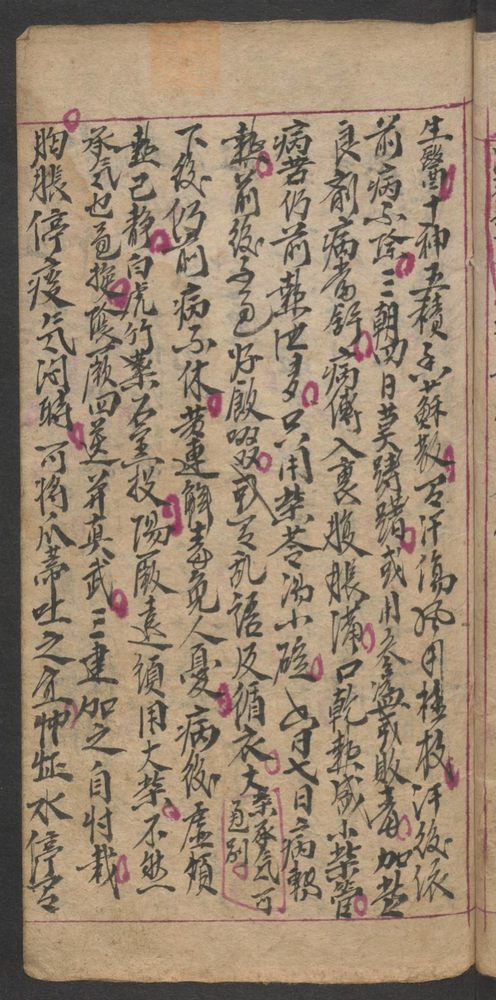 生醫十神五積香蘇散若汗傷風用桂枝汗後依
前病不除三朝四日莫踌躇或用參蘇或敗毒加芩
良劑病當舒病傳入裏腹脹滿口乾熱盛小柴管
病若仍前熱泄多只用柴苓湯小碗六日七日病轉
熱前後不通好飯啜或若乱語及循衣大柴承氣可通別
下後仍前病不休黃連解毒免人憂病後虛煩
熱已静白虎竹葉石羔投陽厥遠須用大柴不然
承氣也通挽陰厥四逆并真武三建加之自忖裁
胸脹停痰氣闷時可將瓜蒂吐之宜怔忡水停若